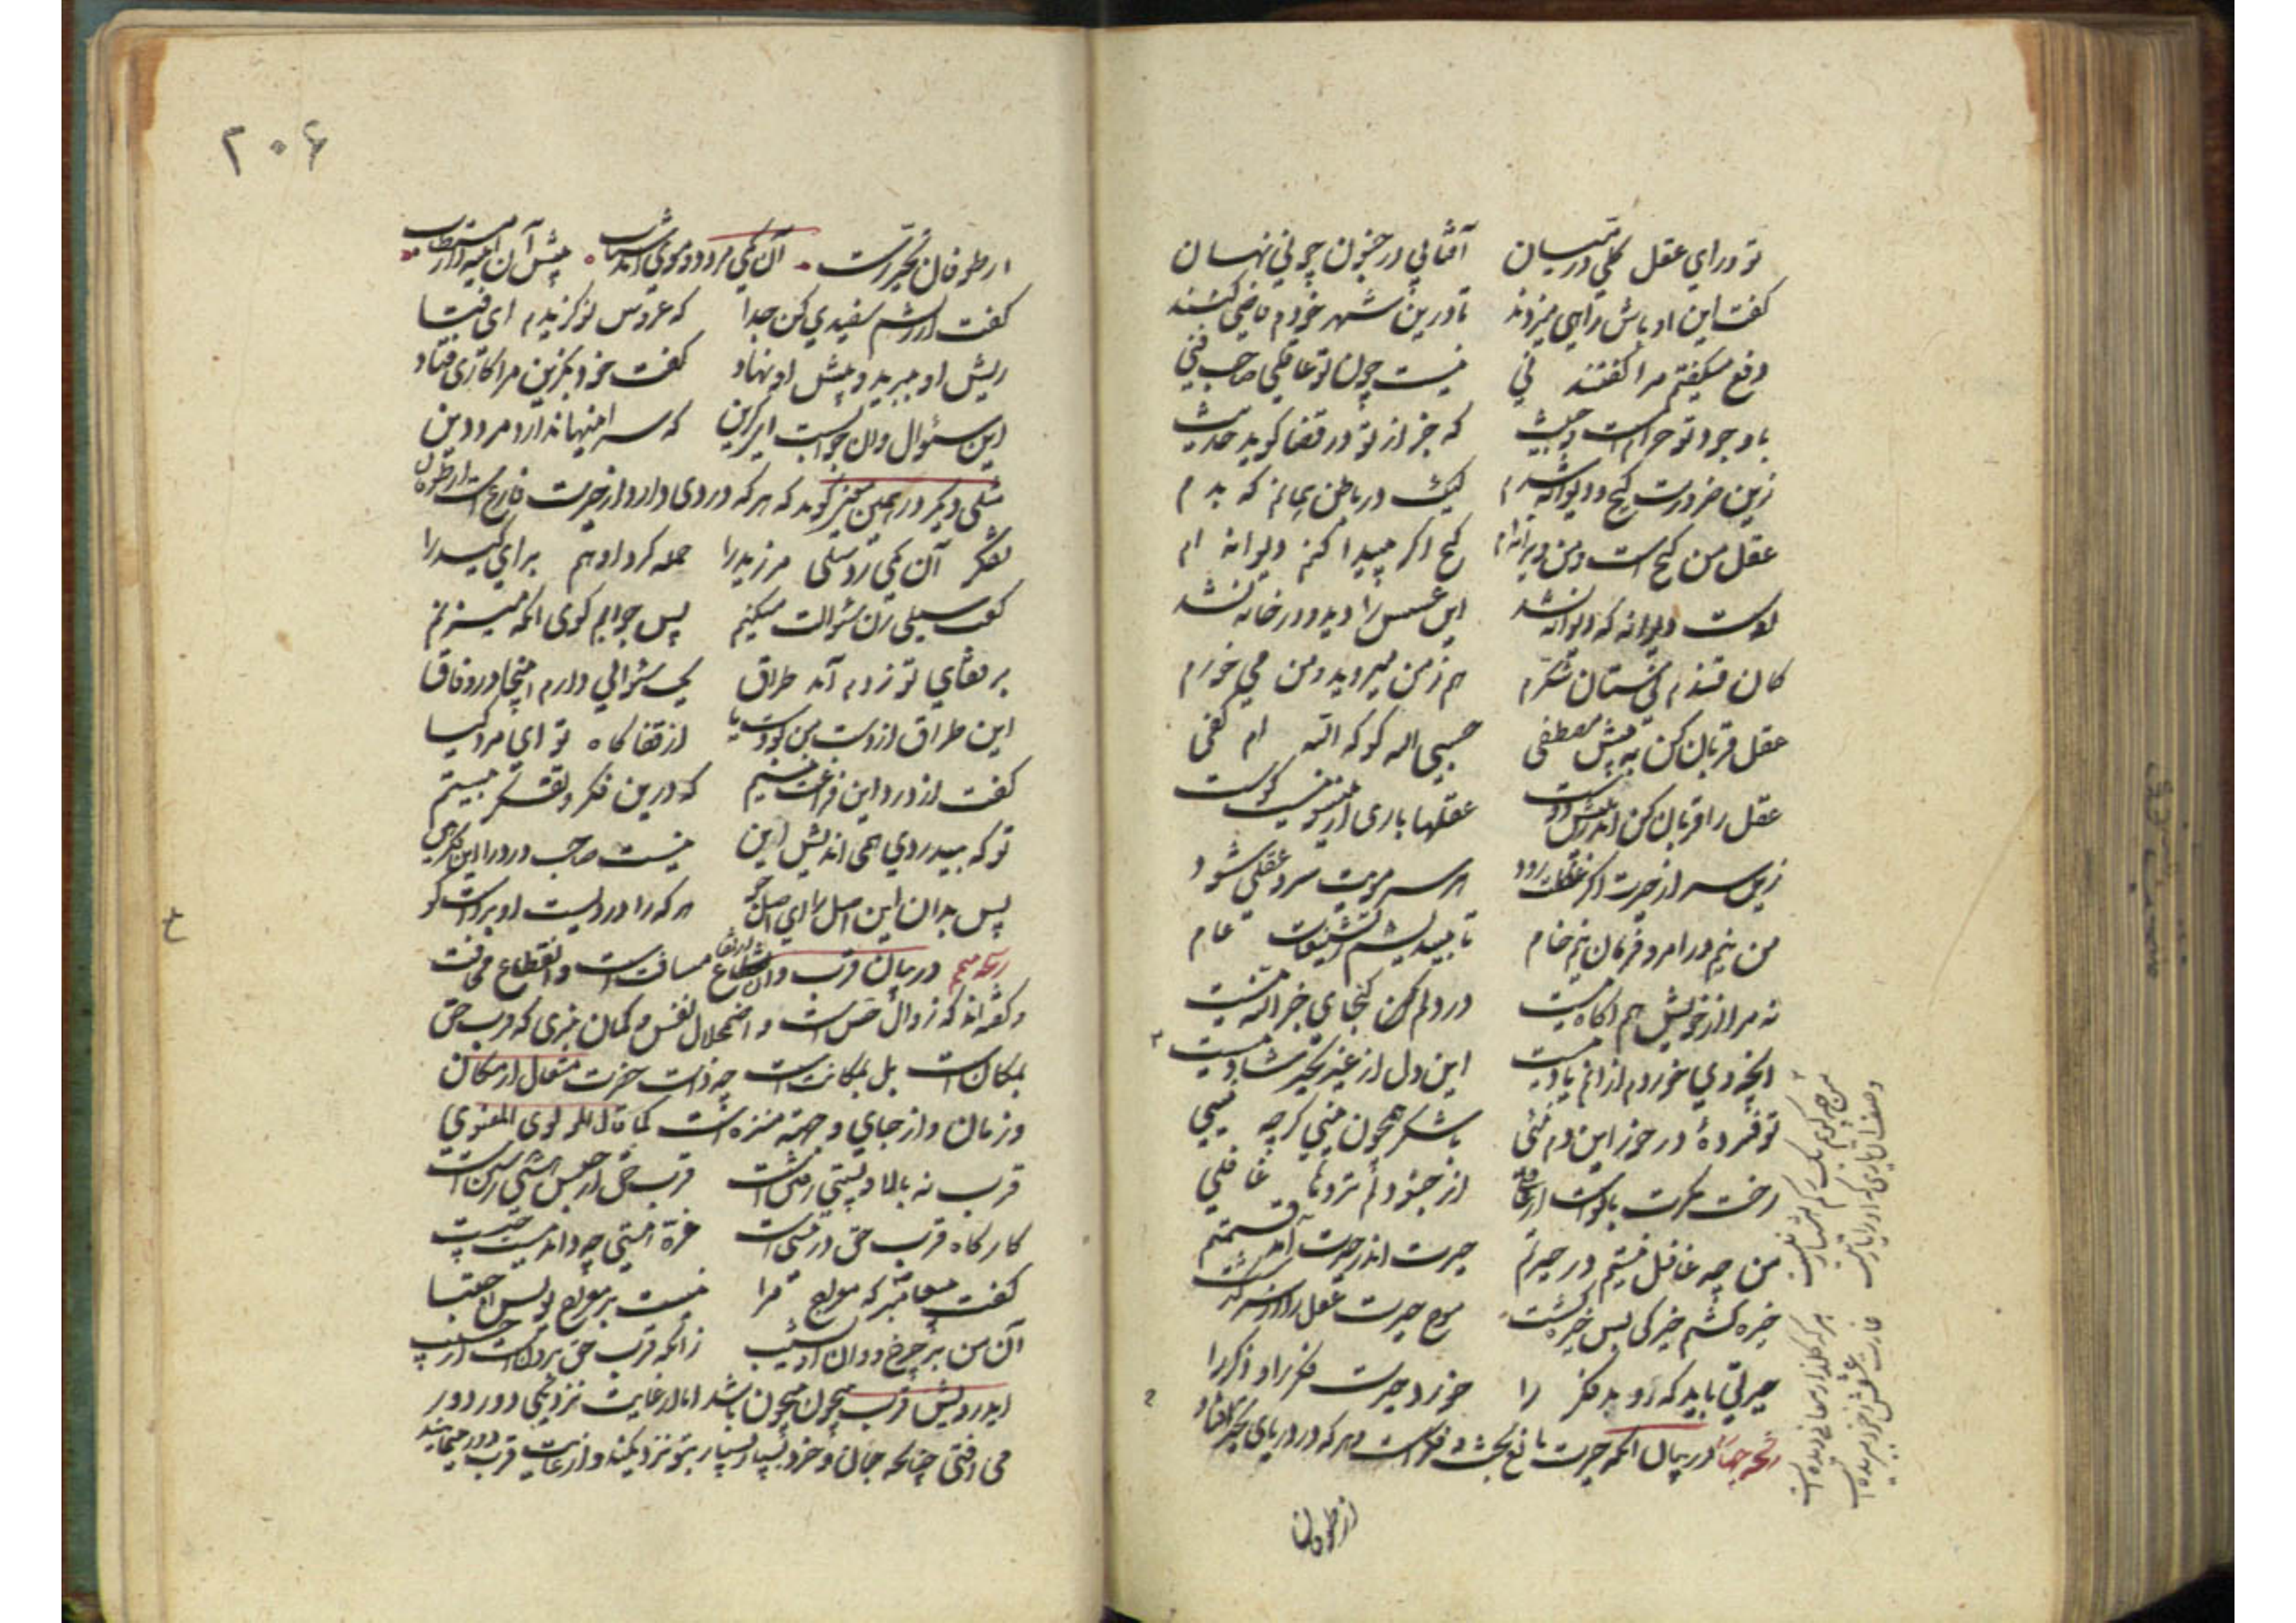 تو ورای عقل کلی در بیان آفتابی در جنون چونی نهان
کفت این اوباش رایی میزنند تا درین شهر خودم قاضی کنند
دفع میکفتم مرا کفتند نی نیست چون تو عالمی صاحب فنی
با وجود تو حرامست و خبیث که جز از تو در قضا کوید حدیث
زین ضرورت کیج و دیوانه شدم لیک در باطن همانم که بدم
عقل من کنج است و من ویرانه ام کنج اکر پیدا کنم دیوانه ام
اوست دیوانه که دیوانه نشد این عسس را دید و در خانه نشد
کان قندم نیستان شکرم هم ز من میروید و من می خورم
عقل قربان کن به پیش مصطفی حسبی الله کو که الله ام کفی
عقل را قربان کن اندر عشق دوست عقلها باری از آنسویست کوست
زین سر از حیرت اکر عقلت رود هر سر مویت سر و عقلی شود
من نیم در امر و فرمان نیم خام تا بیندیشم ز تشنیعات عام
نه مرا از خویش هم آکاه نیست در دلم کنجای جز الله نیست
آنچه دی خوردم از آنم یاد نیست این دل از غیر تحیر شاد نیست
تو فسرده در خور این دم نئی با شکر مقرون نئی کرچه نیی
رخت عقلت با توست از عاقلی از جنودا لم تروها غافلی
من چه غافل نیستم در حیرتم حیرت اندر حیرت آمد قسمتم
خیره کشتم خیرکی بس خیره کشت موج حیرت عقل را از سر کذشت
حیرتی باید که روبد فکر را خورد حیرت فکر را و ذکر را
رشحه چهارم در بیان آنکه حیرت مانع بحث و فکر است و هر که در دریای تحیر افتاد
از طوفان
۲۰۶
از طوفان تحیر رست آن یکی مرد دو موی آمد شتاب پیش آن آیینه دار مستطاب
کفت از ریشم سفیدی کن جدا که عروس نو کزیدم ای فتا
ریش او ببرید و پیش او نهاد کفت خود بکزین مرا کاری فتاد
این سئوال وان جوابست ای کزین که سر اینها ندارد مرد دین
مثلی دیکر در همین معنی کوید که هر که دردی دارد از حیرت فارغ است از طوفان
تفکر آن یکی زد سیلی مر زید را حمله کرد او هم برای کید را
کفت سیلی زن سئوالت میکنم پس جوابم کوی آنکه میزنم
بر قفای تو زدم آمد طراق یک سئوالی دارم اینجا در وفاق
این طراق از دست من بودست یا از قفاکاه تو ای مرد کیا
کفت از درد این فراغت نیستم که درین فکر و تفکر بیستم
تو که بیدردی همی اندیش این نیست صاحب درد را این فکر هین
پس بدان این اصل را ای اصل جو هر که را دردیست او بردست بو
رشحه پنجم در بیان قرب و آن ارتفاع مسافت است و انقطاع می فت
و کفته اند که زوال حس است و اضمحلال نفس و کمان نبری که قرب حق
بمکان است بل بمکانت است چه ذات حضرت متعال از مکان
و زمان و از جای و جهة منزه است کما قال المولوی المعنوی
قرب نه بالا و پستی رفتن است قرب حق از حبس هستی رستن است
کار کاه قرب حق در نیستی است غره هستی چه داند نیست چیست
کفت پیغامبر که معراج مرا نیست بر معراج یونس اجتبا
آن من بر چرخ و آن او نشیب زانکه قرب حق برونست از حسیب
ای درویش قرب بیچون بیچون باشد اما از غایت نزدیکی دور دور
می افتی چنانکه جان و خرد بسیار بسیار بتو نزدیکند و از غایت قرب دور مینمایند